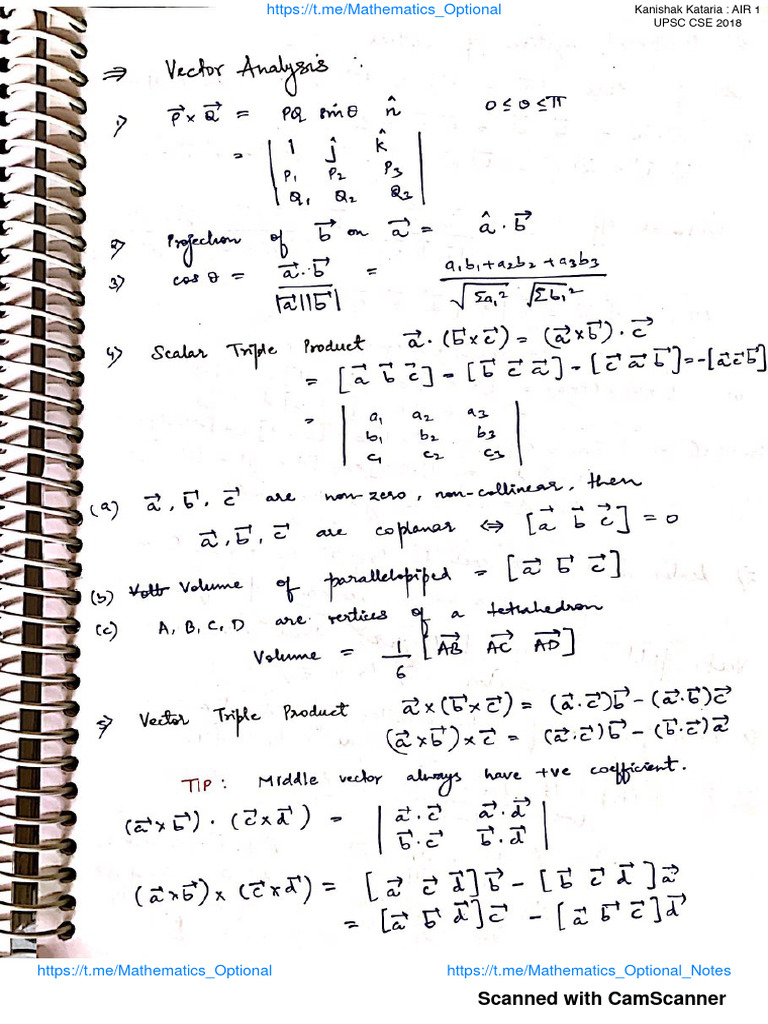 https://t.me/Mathematics_Optional
Kanishak Kataria : AIR 1
UPSC CSE 2018
⇒ Vector Analysis :
1) P⃗ × Q⃗ = PQ sinθ n̂ 0 ≤ θ ≤ π
= | î ĵ k̂ |
| P₁ P₂ P₃ |
| Q₁ Q₂ Q₃ |
2) Projection of b⃗ on a⃗ = â · b⃗
3) cos θ = a⃗ · b⃗ / |a⃗||b⃗| = a₁b₁+a₂b₂+a₃b₃ / √Σa₁² √Σb₁²
4) Scalar Triple Product a⃗ · (b⃗ × c⃗) = (a⃗ × b⃗) · c⃗
= [a⃗ b⃗ c⃗] = [b⃗ c⃗ a⃗] = [c⃗ a⃗ b⃗] = -[a⃗ c⃗ b⃗]
= | a₁ a₂ a₃ |
| b₁ b₂ b₃ |
| c₁ c₂ c₃ |
(a) a⃗, b⃗, c⃗ are non-zero, non-collinear, then
a⃗, b⃗, c⃗ are coplanar ⇔ [a⃗ b⃗ c⃗] = 0
(b) Volume of parallelopiped = [a⃗ b⃗ c⃗]
(c) A, B, C, D are vertices of a tetrahedron
Volume = 1/6 [AB⃗ AC⃗ AD⃗]
5) Vector Triple Product a⃗ × (b⃗ × c⃗) = (a⃗ · c⃗)b⃗ − (a⃗ · b⃗)c⃗
(a⃗ × b⃗) × c⃗ = (a⃗ · c⃗)b⃗ − (b⃗ · c⃗)a⃗
TIP : Middle vector always have +ve coefficient.
(a⃗ × b⃗) · (c⃗ × d⃗) = | a⃗ · c⃗ a⃗ · d⃗ |
| b⃗ · c⃗ b⃗ · d⃗ |
(a⃗ × b⃗) × (c⃗ × d⃗) = [a⃗ c⃗ d⃗]b⃗ − [b⃗ c⃗ d⃗]a⃗
= [a⃗ b⃗ d⃗]c⃗ − [a⃗ b⃗ c⃗]d⃗
https://t.me/Mathematics_Optional
https://t.me/Mathematics_Optional_Notes
Scanned with CamScanner